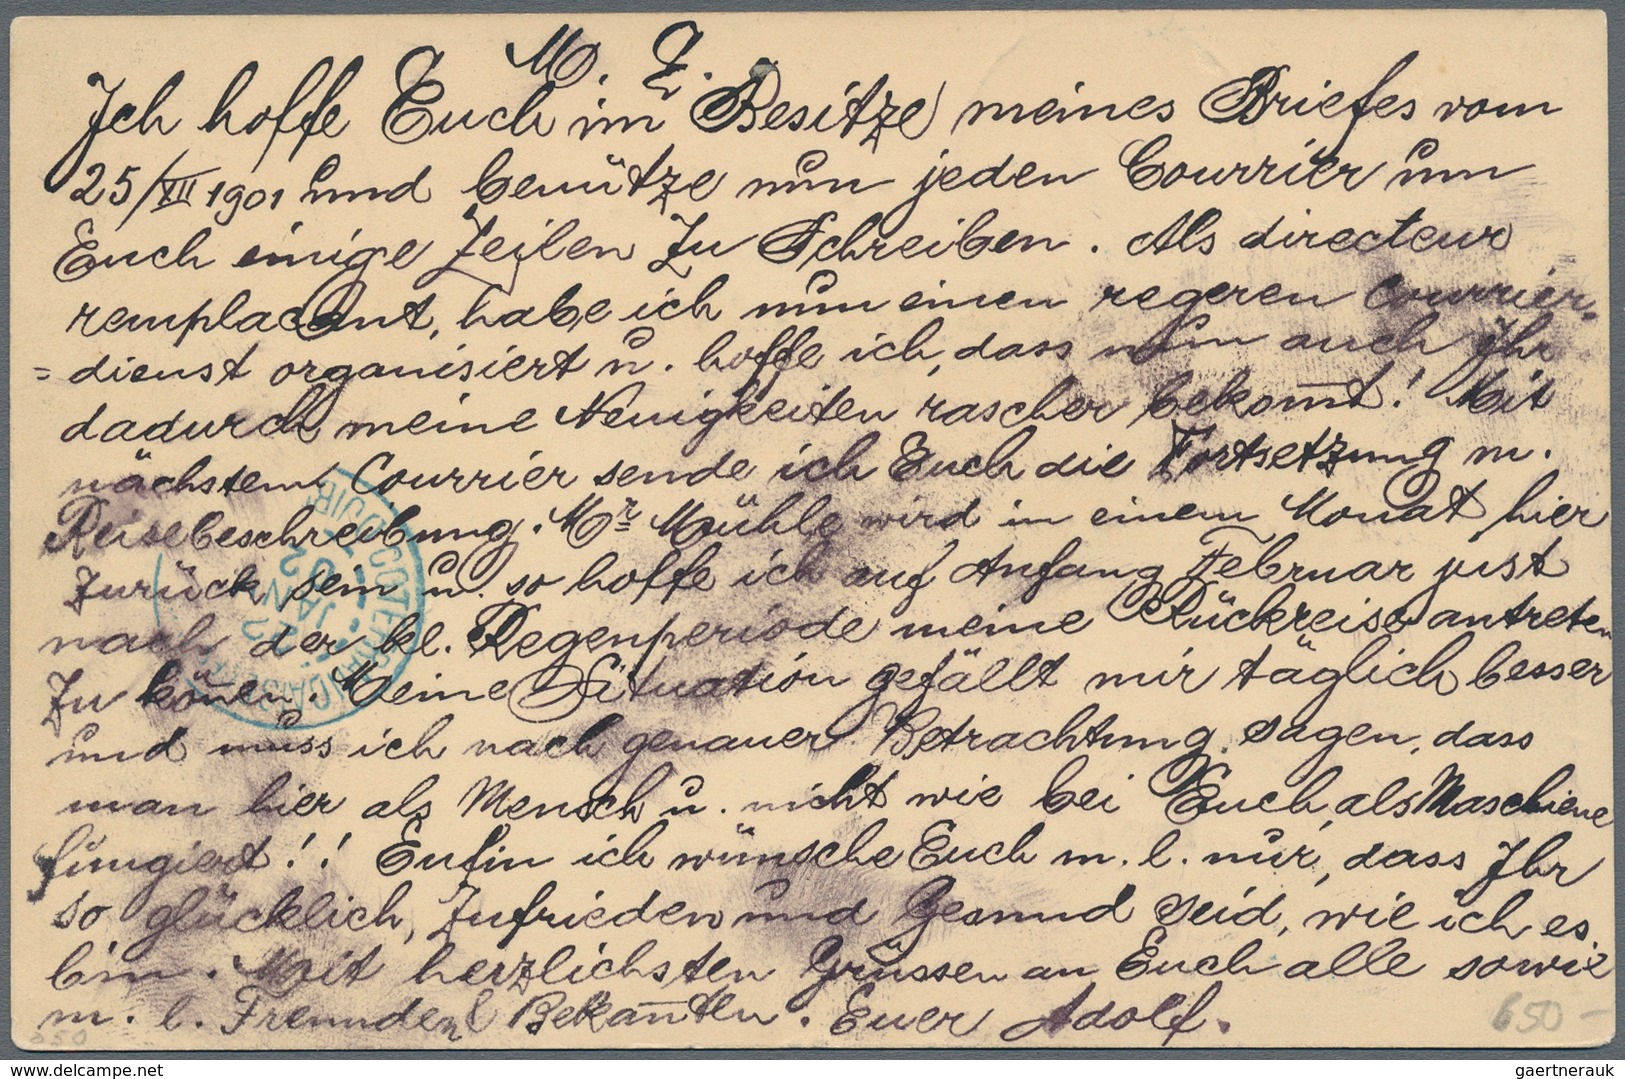 M. L.
Ich hoffe Euch im Besitze meines Briefes vom
25/XII 1901 und benütze nun jeden Courrier um
Euch einige Zeilen zu Schreiben. Als directeur
remplacant, habe ich nun einen regeren Courrier-
=dienst organisiert u. hoffe ich, dass nun auch Ihr
dadurch meine Neuigkeiten rascher bekom̅t! Mit
nächstem Courrier sende ich Euch die Fortsetzung m.
Reisebeschreibung. Mr Mühle wird in einem Monat hier
zurück sein u. so hoffe ich auf Anfang Februar just
nach der kl. Regenperiode meine Rückreise antreten
zu kön̅en. Meine Situation gefällt mir täglich besser
und muss ich nach genauer Betrachtung sagen, dass
man hier als Mensch u. nicht wie bei Euch, als Maschiene
fungiert!! Enfin ich wünsche Euch m. l. nur, dass Ihr
so glücklich, zufrieden und Gesund seid, wie ich es
bin. Mit herzlichsten Grüssen an Euch alle sowie
m. l. Freunden & Bekan̅ten. Euer Adolf.
JAN
02
650-
350
www.delcampe.net
gaertnerauk